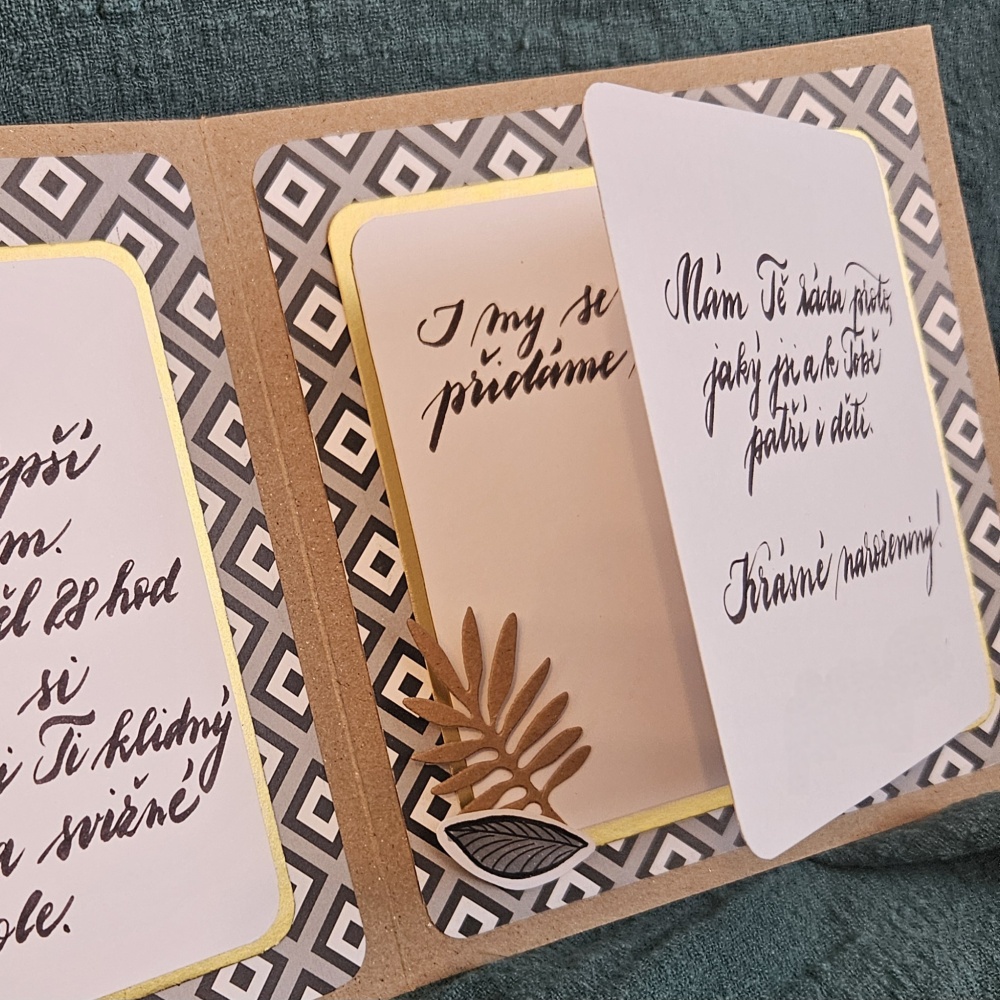 si
Ti klidný
svižné
28 hod
I my se
přidáme
Mám Tě ráda proto,
jaký jsi a k Tobě
patří i děti.
Krásné narozeniny!